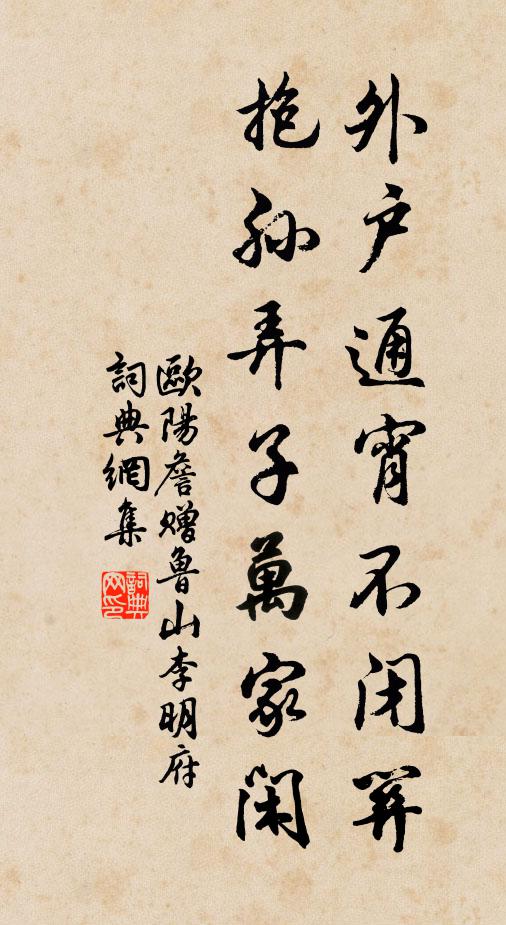 外户通宵不闭關
抱孫弄子萬家閑
歐陽詹贈魯山李明府
詞典網集
詞典网印